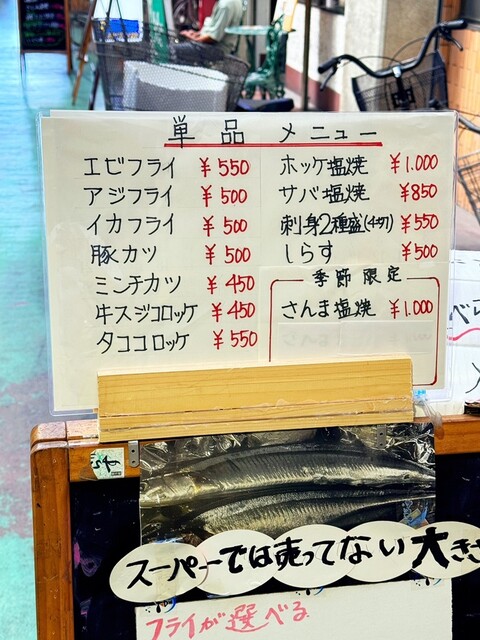 単品メニュー
エビフライ ¥550
アジフライ ¥500
イカフライ ¥500
豚カツ ¥500
ミンチカツ ¥450
牛スジコロッケ ¥450
タココロッケ ¥550
ホッケ塩焼 ¥1.000
サバ塩焼 ¥850
刺身2種盛(4切) ¥550
しらす ¥500
季節限定
さんま塩焼 ¥1.000
スーパーでは売ってない大きさ
フライが選べる